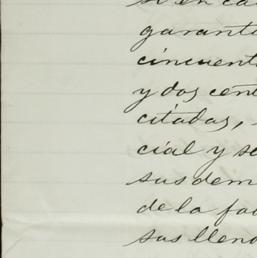 so en ca
garanti
cincuent
y dos cent
citadas,
cial y se
sus dem
de la fac
sus lleno